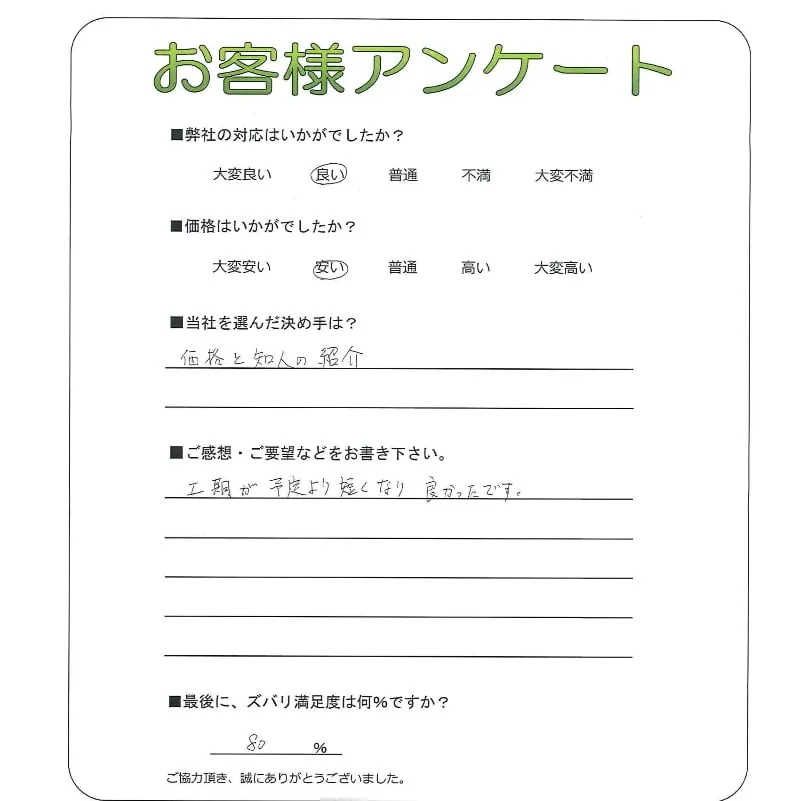 お客様アンケート
■弊社の対応はいかがでしたか？
大変良い 良い 普通 不満 大変不満
■価格はいかがでしたか？
大変安い 安い 普通 高い 大変高い
■当社を選んだ決め手は？
価格と知人の紹介
■ご感想・ご要望などをお書き下さい。
工期が予定より短くなり良かったです。
■最後に、ズバリ満足度は何%ですか？
80 %
ご協力頂き、誠にありがとうございました。